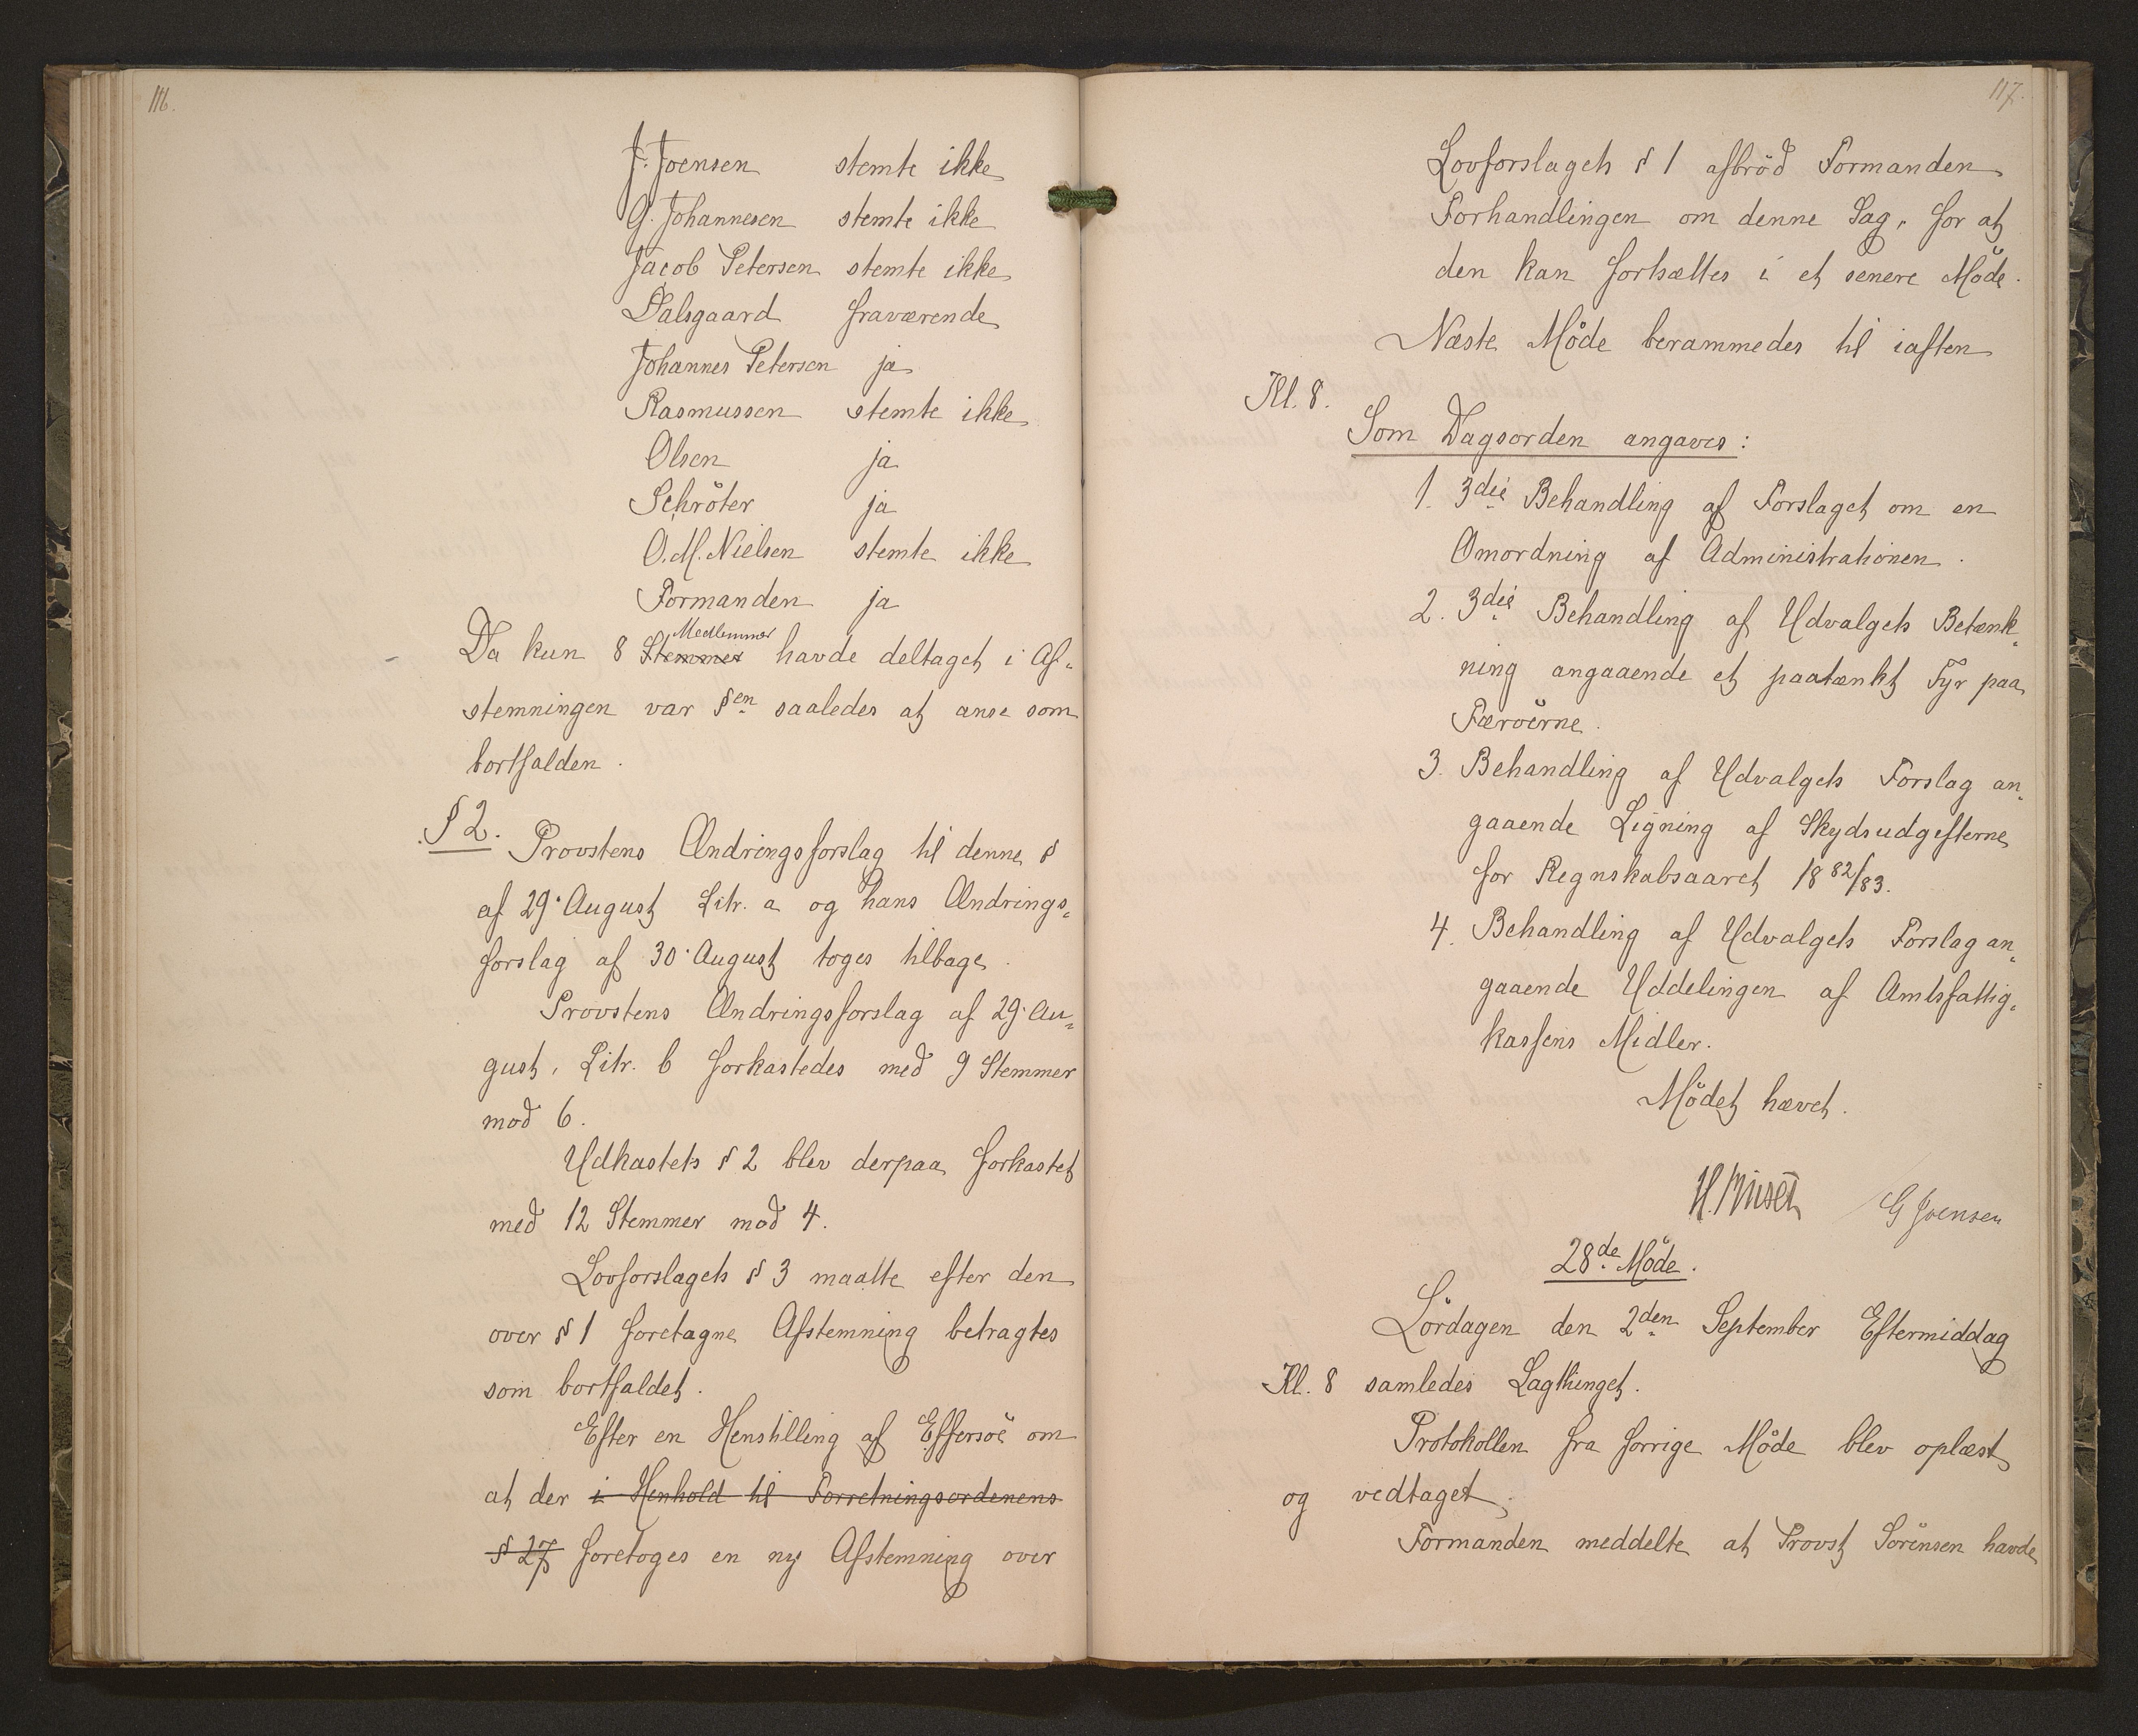 116.
J. Joensen stemte ikke
G. Johannesen stemte ikke
Jacob Petersen stemte ikke
Dalsgaard fraværende
Johannes Petersen ja
Rasmussen stemte ikke
Olsen ja
Schröter ja
O. M. Nielsen stemte ikke
Formanden ja
Medlemmer
Da kun 8 Stemmer havde deltaget i Af-
stemningen var §en saaledes at anse som
bortfalden.
§ 2. Provstens Ændringsforslag til denne §
af 29. August Litr. a og hans Ændrings-
forslag af 30. August toges tilbage.
Provstens Ændringsforslag af 29. Au-
gust, Litr. b forkastedes med 9 Stemmer
mod 6.
Udkastets § 2 blev derpaa forkastet
med 12 Stemmer mod 4.
Lovforslagets § 3 maatte efter den
over § 1 foretagne Afstemning betragtes
som bortfaldet.
Efter en Henstilling af Effersöe om
at der i Henhold til Forretningsordenens
§ 27 foretoges en ny Afstemning over
117.
Lovforslagets § 1 afbröd Formanden
Forhandlingen om denne Sag, for at
den kan fortsættes i et senere Möde.
Næste Möde berammedes til iaften
Kl. 8.
Som Dagsorden angaves:
1. 3die Behandling af Forslaget om en
Omordning af Administrationen.
2. 3die Behandling af Udvalgets Betænk-
ning angaaende et paatænkt Fyr paa
Færöerne.
3. Behandling af Udvalgets Forslag an-
gaaende Ligning af Skydsudgifterne
for Regnskabsaaret 1882/83.
4. Behandling af Udvalgets Forslag an-
gaaende Uddelingen af Amtsfattig-
kassens Midler.
Mödet hævet.
G Joensen
28de Möde.
Lördagen den 2den September Eftermiddag
Kl. 8 samledes Lagthinget.
Protokollen fra forrige Möde blev oplæst
og vedtaget.
Formanden meddelte at Provst Sörensen havde